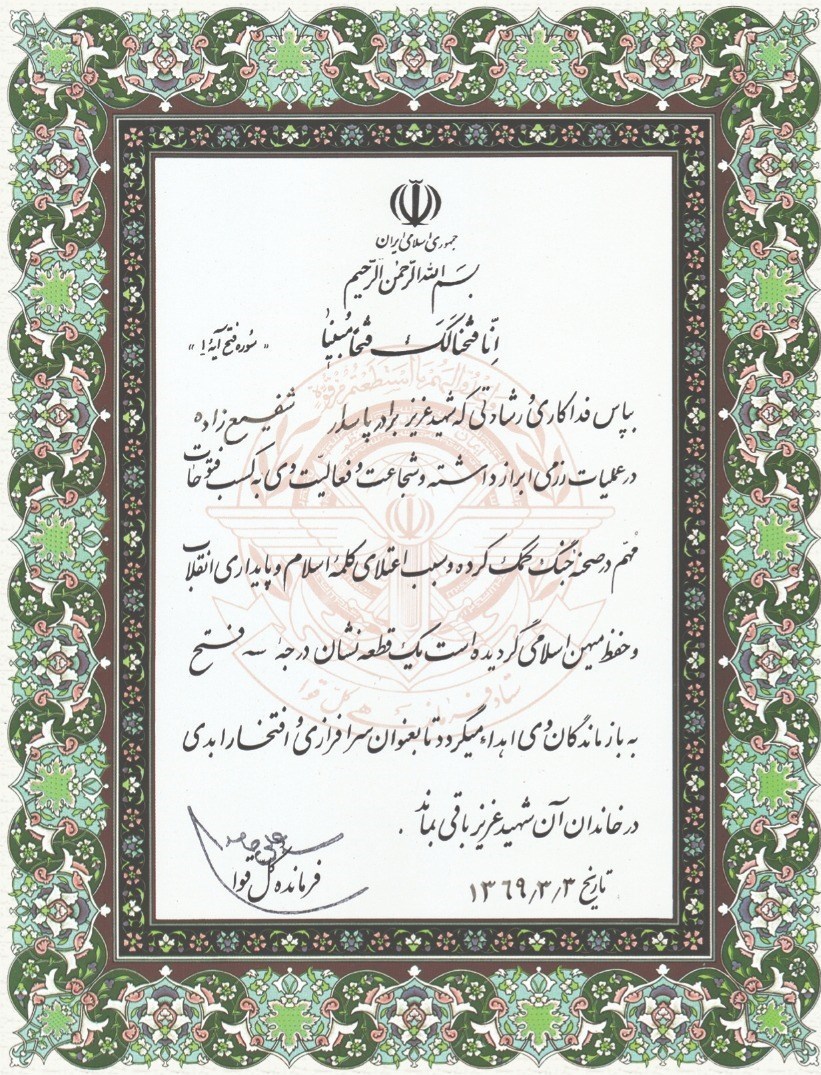 جمهوری اسلامی ایران
بسم الله الرحمن الرحیم
اِنّا فتحنا لَکَ فتحاً مُبیناً « سوره فتح آیهٔ ۱ »
بپاس فداکاری و رشادتی که شهید عزیز برادر پاسدار شفیع زاده
در عملیات رزمی ابراز داشته و شجاعت و فعالیّت وی به کسب فتوحات
مهّم در صحنه جنگ کمک کرده و سبب اعتلای کلمهٔ اسلام و پایداری انقلاب
و حفظ میهن اسلامی گردیده است یک قطعه نشان درجهٔ فتح
به بازماندگان وی اهداء میگردد تا بعنوان سرافرازی و افتخار ابدی
در خاندان آن شهید عزیز باقی بماند .
تاریخ ۱۳۶۹/۳/۳
فرمانده کل قوا